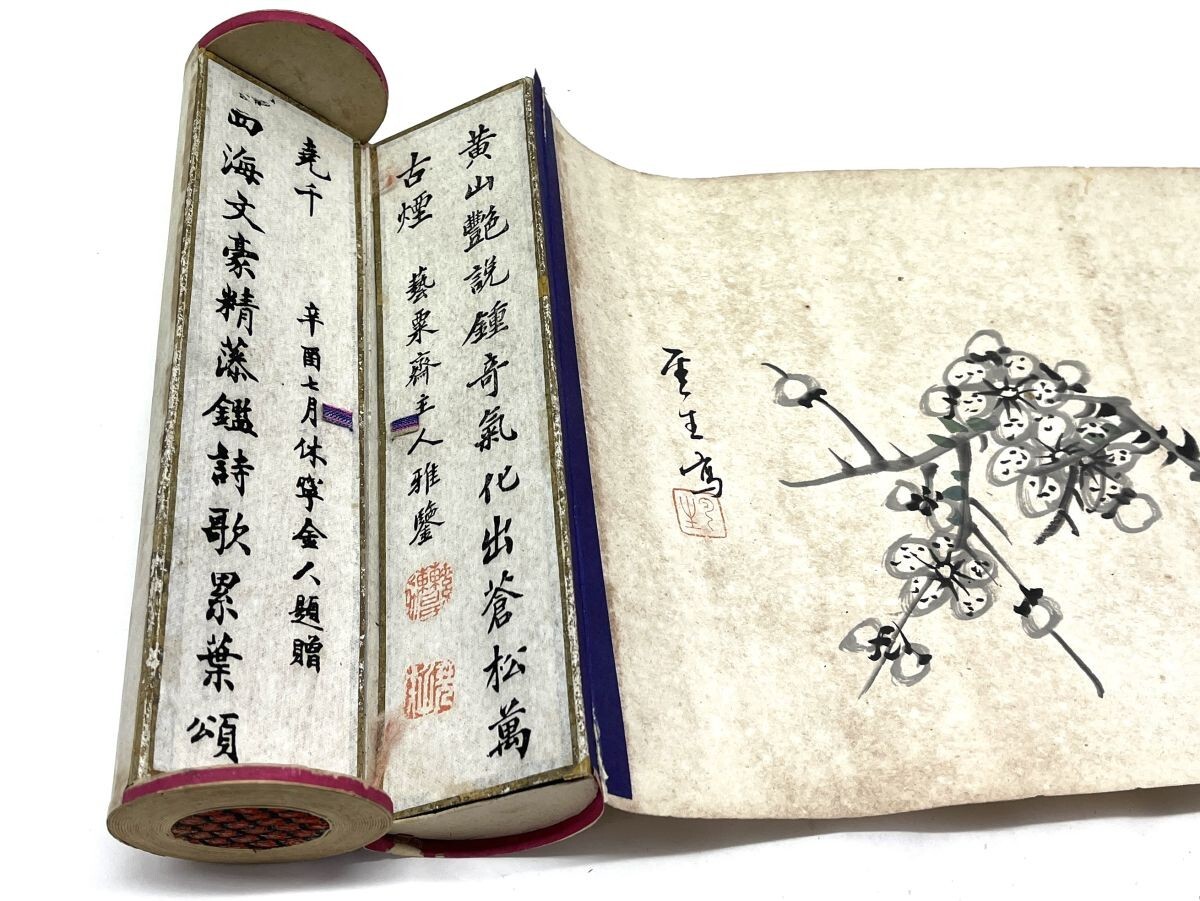 黄山艷說鍾奇氣化出蒼松萬
古煙　藝粟齋主人雅鑒
四海文豪精藻鑑詩歌累葉頌
堯千　辛酉七月休寧金人題贈
生寫